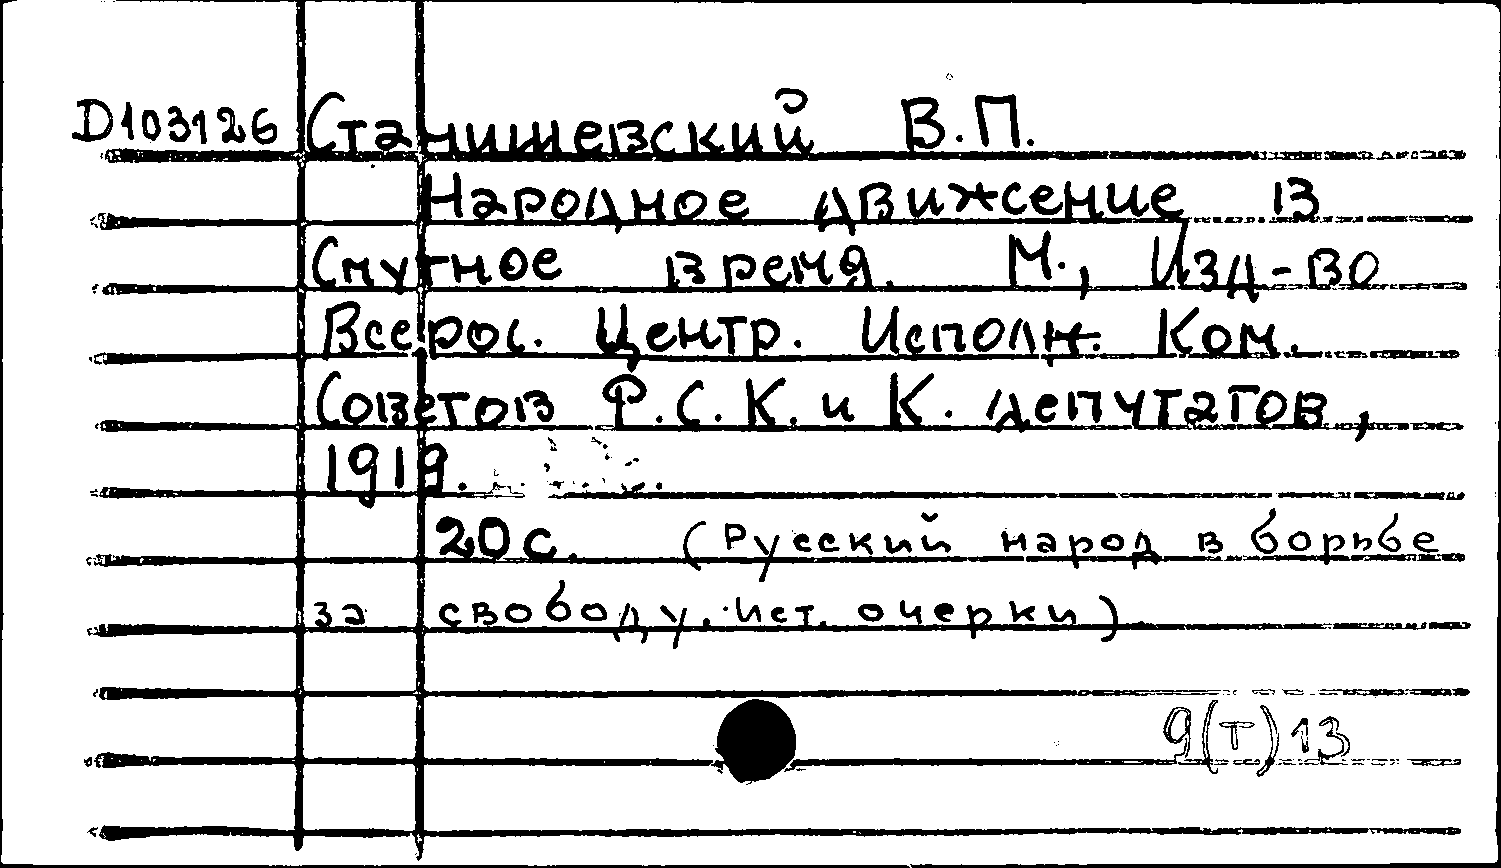 D103126 Станишевский В.П.
Народное движение в
Смутное время. М., Изд-во
Всерос. Центр. Исполн. Ком.
Советов Р.С.К. и К. депутатов,
1919.
20 с. (Русский народ в борьбе
за свободу. Ист. очерки)
9(Т)13